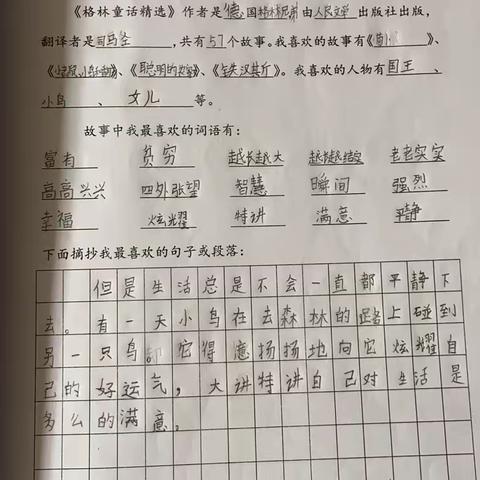 《格林童话精选》作者是德国格林兄弟由人民文学出版社出版，
翻译者是司马仝，共有57个故事。我喜欢的故事有《》、
《》、《聪明的农家女》、《铁汉其斤》。我喜欢的人物有国王、
小鸟、女儿等。
故事中我最喜欢的词语有：
富有 贫穷 越长越大 老老实实
高高兴兴 四外张望 智慧 瞬间 强烈
幸福 炫耀 特讲 满意 平静
下面摘抄我最喜欢的句子或段落：
但是生活总是不会一直都平静下
去。有一天小鸟在去森林的路上碰到
另一只鸟，它得意扬扬地向它炫耀自
己的好运气，大讲特讲自己对生活是
多么的满意。